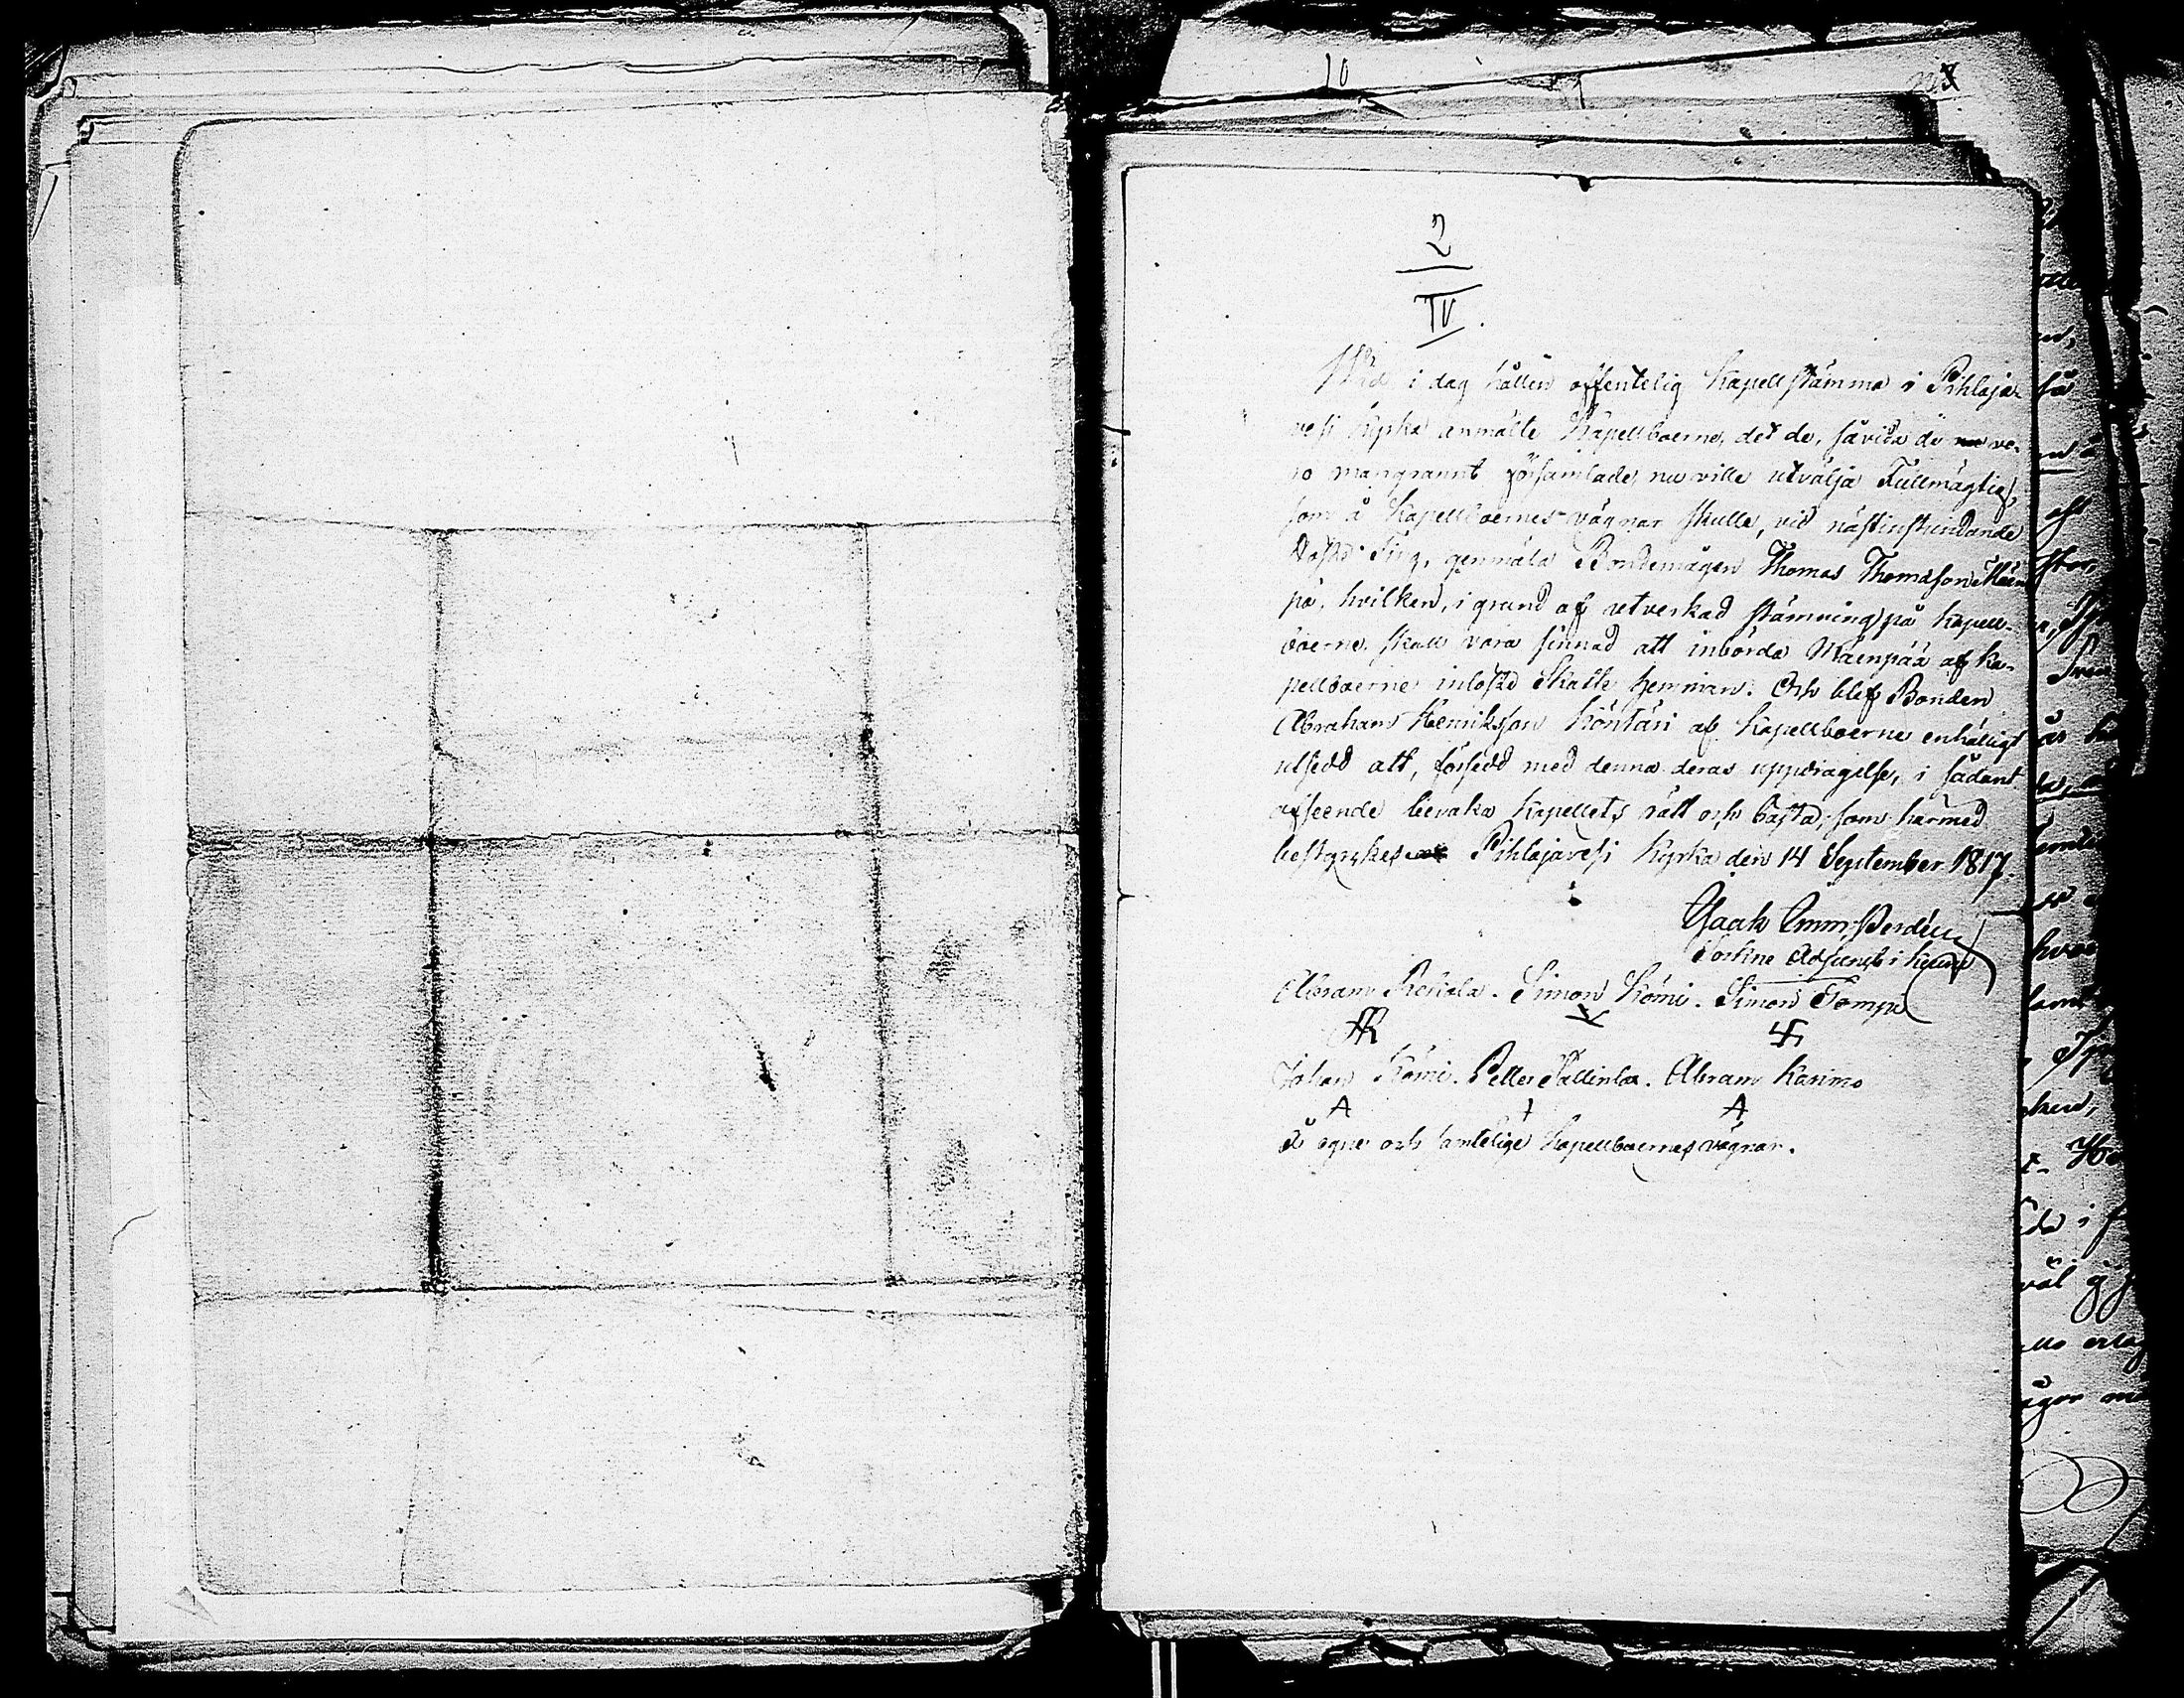 10
2
IV.
Wid i dag hållen offentelig Kapellstämma i Pihlaja-
vesi kyrka anmälte Kapellboerne, det de, såvida de vo-
ro mangrannt församlade, nu ville utvälja Fullmägtig,
som å Kapellboernes vägnar skulle, vid nästinstundande
Höste Ting, genmäla Bondemågen Thomas Thomasson Mäen
pä, hvilken, i grund af utverkad stämning på kapell-
boerne, skall vara sinnad att inbörda Mäenpää af ka-
pellboerne inlöste Skatte hemman. Och blef Bonden
Abraham Henriksson Köntäri af Kapellboerne enhälligt
utsedd att, försedd med denna deras uppdragelse, i sådant
afseende bevaka kapellets rätt och bästa; som härmed
bestyrkes Pihlajavesi Kyrka den 14 September 1817.
Isaak Emm:
Abram Simon Kömi. Simon Tompi
AR
Johan Kömi. Petter Abram Karimo
A A
Å egne och samtelige Kapellboernes vägnar.